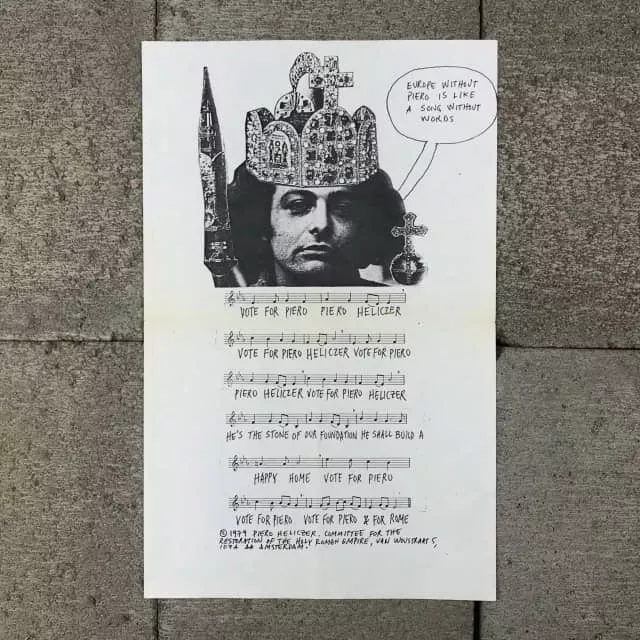 EUROPE WITHOUT
PIERO IS LIKE
A SONG WITHOUT
WORDS
VOTE FOR PIERO PIERO HELICZER
VOTE FOR PIERO HELICZER VOTE FOR PIERO
PIERO HELICZER VOTE FOR PIERO HELICZER
HE'S THE STONE OF OUR FOUNDATION HE SHALL BUILD A
HAPPY HOME VOTE FOR PIERO
VOTE FOR PIERO VOTE FOR PIERO & FOR ROME
© 1979 PIERO HELICZER. COMMITTEE FOR THE
RESTORATION OF THE HOLY ROMAN EMPIRE, VAN
AMSTERDAM.